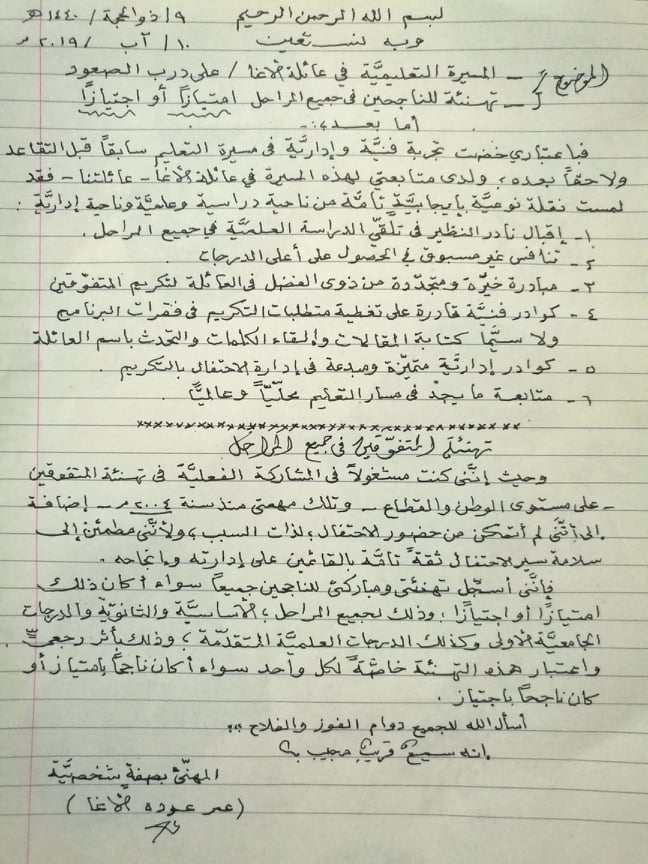 بسم الله الرحمن الرحيم ٩/ ذو الحجة / ١٤٤٠ هـ
وبه نستعين ١٠/ آب / ٢٠١٩ م
الموضوع / - المسيرة التعليميَّة في عائلة الأغا / على درب الصعود
- تهنئة للناجحين في جميع المراحل امتيازاً أو اجتيازاً
أما بعد :-
فباعتباري خضت تجربة فنيَّة وإداريَّة في مسيرة التعليم سابقاً قبل التقاعد
ولاحقاً بعده، ولدى متابعتي لهذه المسيرة في عائلة الأغا - عائلتنا - فقد
لمست نقلة نوعيَّة بإيجابيَّةٍ تامَّة من ناحية دراسية وعلميَّة وناحية إداريَّة :
١- إقبال نادر النظير في تلقّي الدراسة العلميَّة في جميع المراحل .
٢- تنافس غير مسبوق في الحصول على أعلى الدرجات
٣- مبادرة خيِّرة ومتجدّدة من ذوي الفضل في العائلة لتكريم المتفوّقين
٤- كوادر فنيَّة قادرة على تغطية متطلبات التكريم في فقرات البرنامج
ولا سيَّما كتابة المقالات وإلقاء الكلمات والتحدث باسم العائلة
٥- كوادر إداريَّة متميّزة ومبدعة في إدارة الاحتفال بالتكريم .
٦- متابعة ما يجدّ في مسار التعليم محلّيّاً وعالميّاً .
تهنئة المتفوّقين في جميع المراحل
وحيث إنَّني كنت مشغولاً في المشاركة الفعليَّة في تهنئة المتفوقين
- على مستوى الوطن والقطاع - وتلك مهمتي منذ سنة ٢٠٠٤ م - إضافة
إلى أنَّني لم أتمكن من حضور الاحتفال لذات السبب، ولأنَّني مطمئن إلى
سلامة سير الاحتفال ثقةً تامَّة بالقائمين على إدارته وإنجاحه .
فإنَّني أسجّل تهنئتي ومباركتي للناجحين جميعاً سواء أكان ذلك
امتيازاً أو اجتيازاً، وذلك لجميع المراحل؛ الأساسيَّة والثانويَّة والدرجات
الجامعيَّة الأولى وكذلك الدرجات العلميَّة المتقدّمة، وذلك بأثر رجعيّ
واعتبار هذه التهنئة خاصَّةً لكل واحد سواء أكان ناجحاً بامتياز أو
كان ناجحاً باجتياز .
أسأل الله للجميع دوام الفوز والفلاح ؛؛
إنه سميع قريب مجيب
المهنّئ بصفةٍ شخصيَّة
(عمر عوده الأغا)